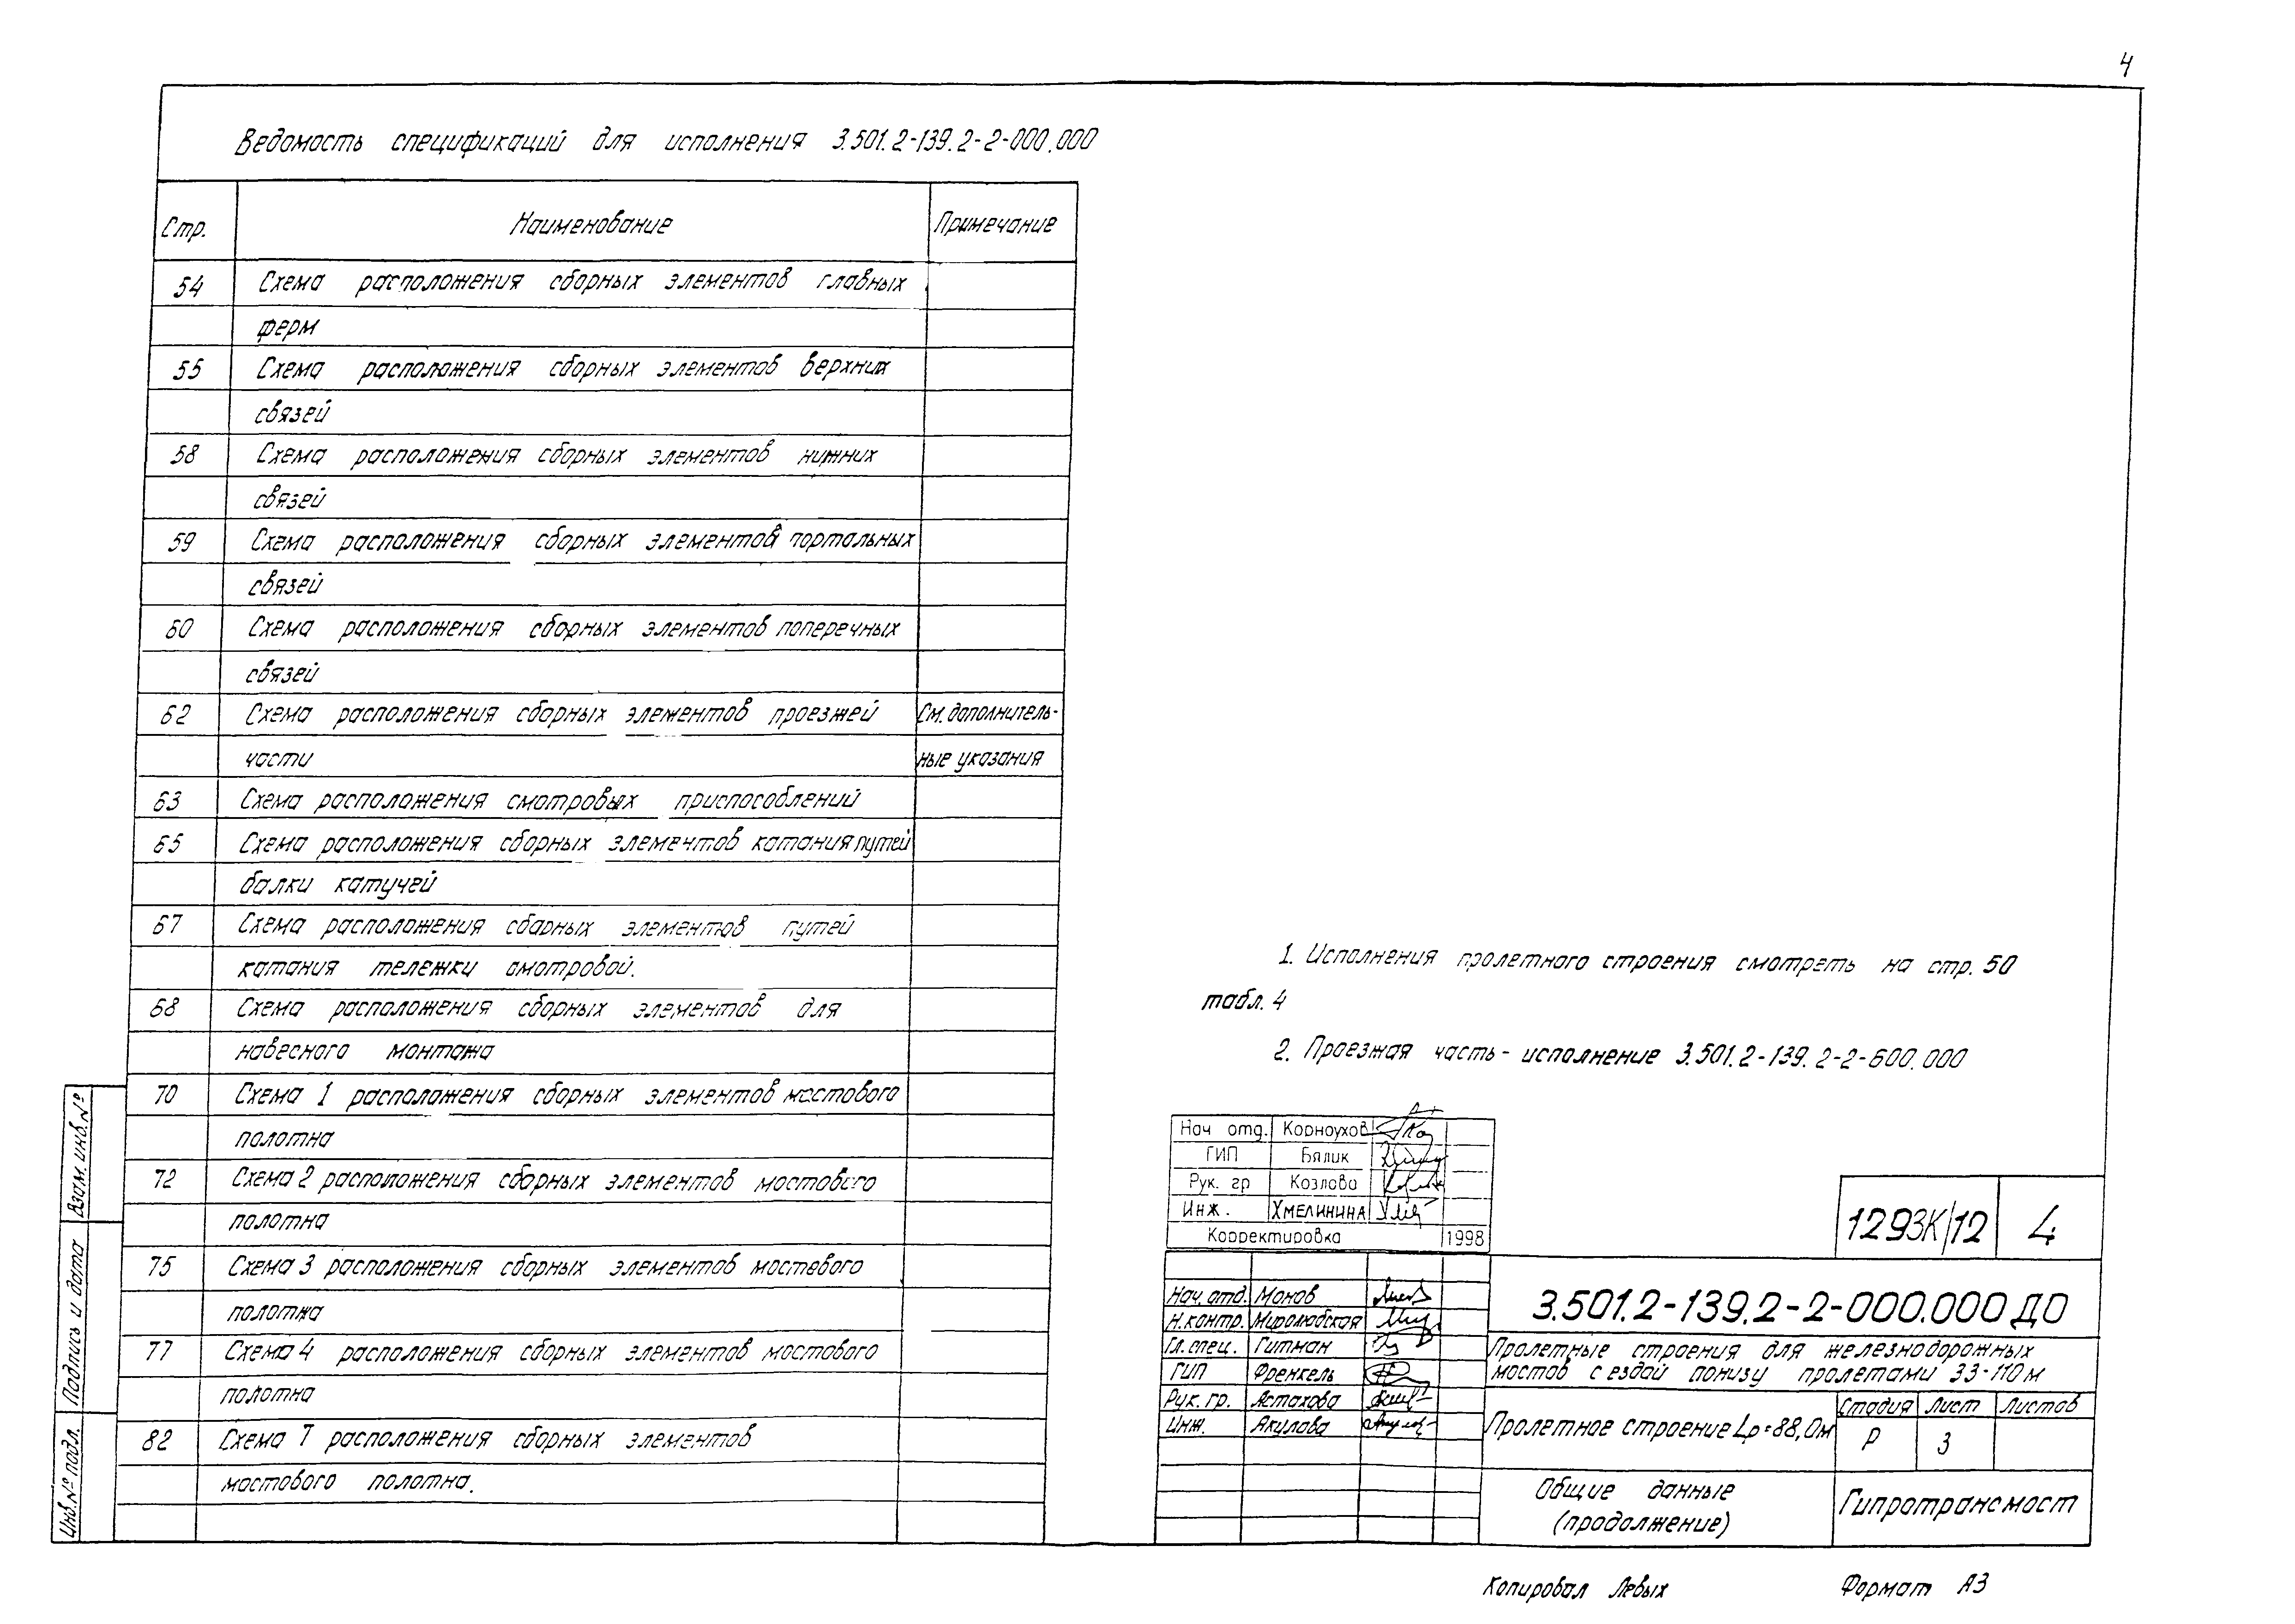 4
Ведомость спецификаций для исполнения 3.501.2-139.2-2-000.000
Стр. Наименование Примечание
54 Схема расположения сборных элементов главных
ферм
55 Схема расположения сборных элементов верхних
связей
58 Схема расположения сборных элементов нижних
связей
59 Схема расположения сборных элементов портальных
связей
60 Схема расположения сборных элементов поперечных
связей
62 Схема расположения сборных элементов проезжей См. дополнитель-
части ные указания
63 Схема расположения смотровых приспособлений
65 Схема расположения сборных элементов катания путей
балки катучей
67 Схема расположения сборных элементов путей
катания тележки смотровой.
68 Схема расположения сборных элементов для
навесного монтажа
70 Схема 1 расположения сборных элементов мостового
полотна
72 Схема 2 расположения сборных элементов мостового
полотна
75 Схема 3 расположения сборных элементов мостового
полотна
77 Схема 4 расположения сборных элементов мостового
полотна
82 Схема 7 расположения сборных элементов
мостового полотна.
1. Исполнения пролетного строения смотреть на стр. 50
табл. 4
2. Проезжая часть - исполнение 3.501.2-139.2-2-600.000
Нач отд. Корноухов
ГИП Бялик
Рук. гр Козлова
Инж. Хмелинина
Корректировка 1998
1293К/12 4
Нач. отд. Монов
Н.контр. Миролюбская
Гл. спец. Гитман
ГИП Френкель
Рук. гр. Астахова
Инж. Акулова
3.501.2-139.2-2-000.000 ДО
Пролетные строения для железнодорожных
мостов с ездой понизу пролетами 33-110 м
Пролетное строение Lр=88,0м
Стадия Лист Листов
Р 3
Общие данные
(продолжение)
Гипротрансмост
Взам. инв. №
Подпись и дата
Инв. № подл.
Копировал Левых Формат А3